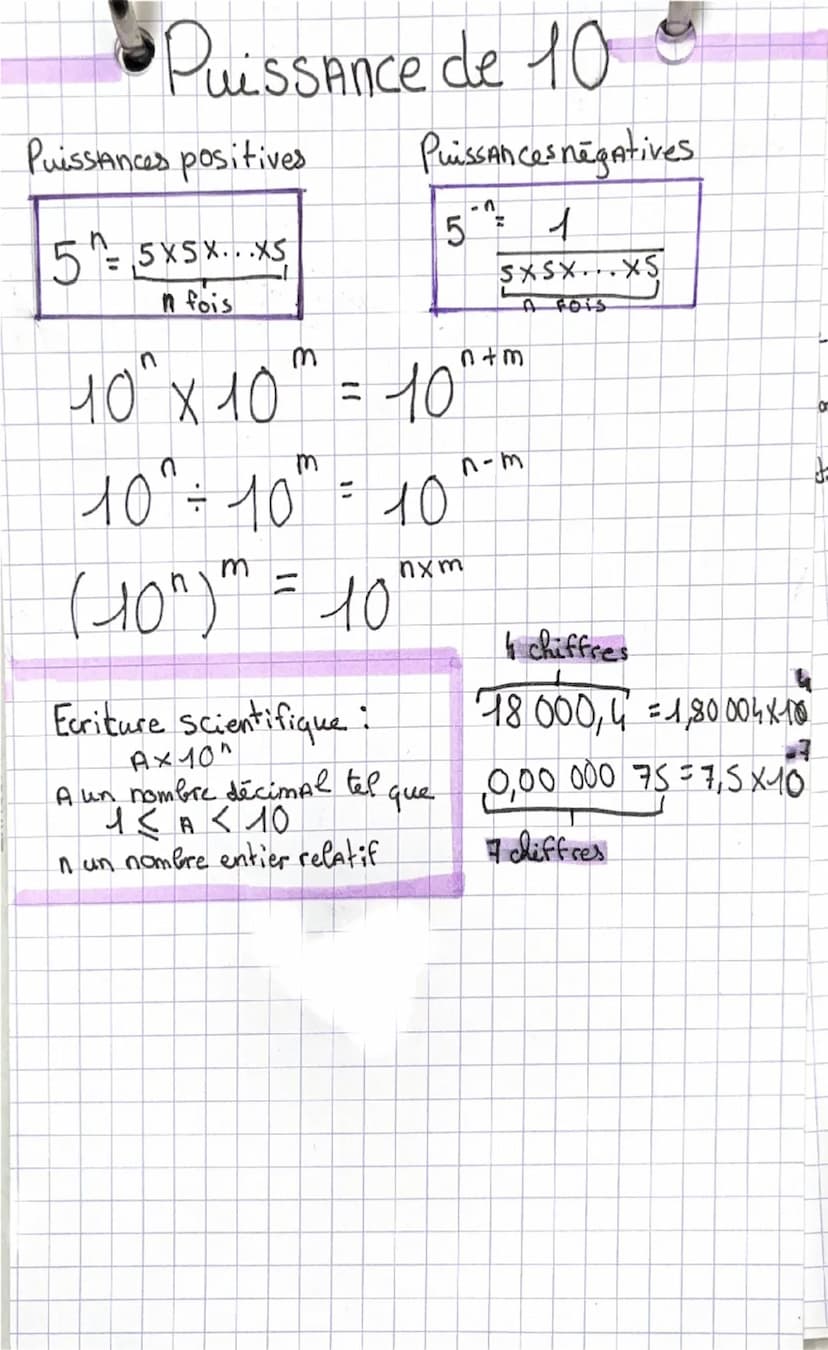 Puissance de 10
Puissances positives
Puissances négatives
5ⁿ = 5x5x...x5
n fois
5⁻ⁿ = 1
5x5x...x5
n fois
10ⁿ x 10ᵐ = 10ⁿ⁺ᵐ
10ⁿ ÷ 10ᵐ = 10ⁿ⁻ᵐ
(10ⁿ)ᵐ = 10ⁿˣᵐ
Ecriture scientifique :
A x 10ⁿ
A un nombre décimal tel que
1 ≤ A < 10
n un nombre entier relatif
4 chiffres
18 000,4 = 1,80 004 x 10⁴
0,00 000 75 = 7,5 x 10⁻⁷
7 chiffres